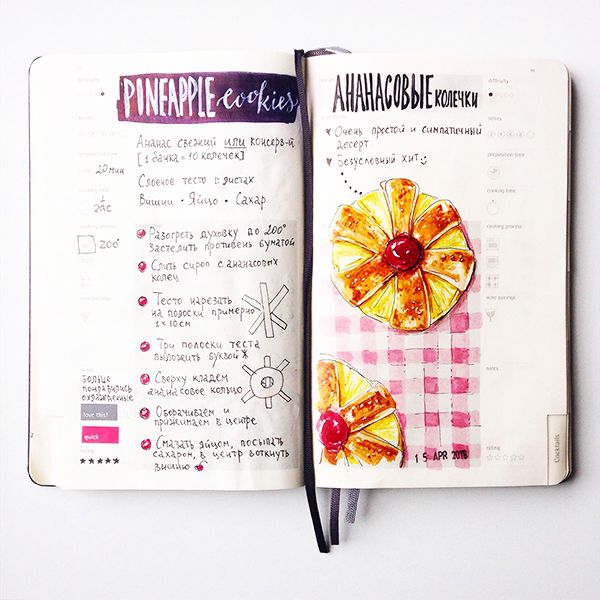 PINEAPPLE cookies
Ананас свежий или консерв-й
[1 банка = 10 колечек]
20 мин
Слоеное тесто в листах
1 час
Вишни • Яйцо • Сахар
200°
Разогреть духовку до 200°
Застелить противень бумагой
Слить сироп с ананасовых
колец
Тесто нарезать
на полоски примерно
1×10 см
Три полоски теста
выложить буквой Ж
Сверху кладем
ананасовое кольцо
Оборачиваем и
прижимаем в центре
Смазать яйцом, посыпать
сахаром, в центр воткнуть
вишню
больше
понравились
охлажденные
love this!
quick
rating
АНАНАСОВЫЕ КОЛЕЧКИ
Очень простой и симпатичный
десерт
Безусловный хит
difficulty
serves
preparation time
cooking time
cooking process
wine pairings
notes
rating
Cocktails
15 APR 2016